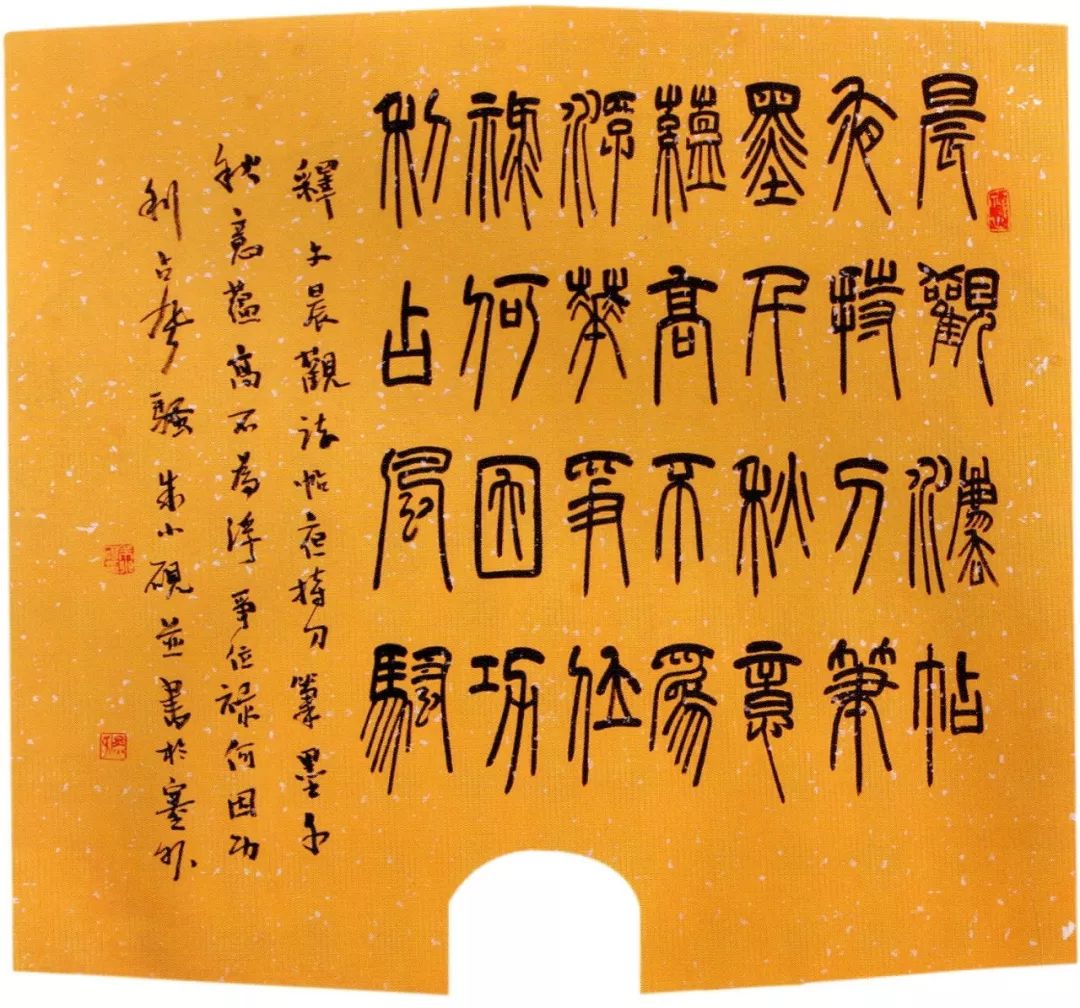 晨觀灋帖
夜持刀筆
墨千秋意
蘊高不爲
浮華爭位
祿何因功
利占風騷
釋文晨觀法帖夜持刀筆墨千
秋意蘊高不為浮爭位祿何因功
利占風騷朱小硯並書於塞外